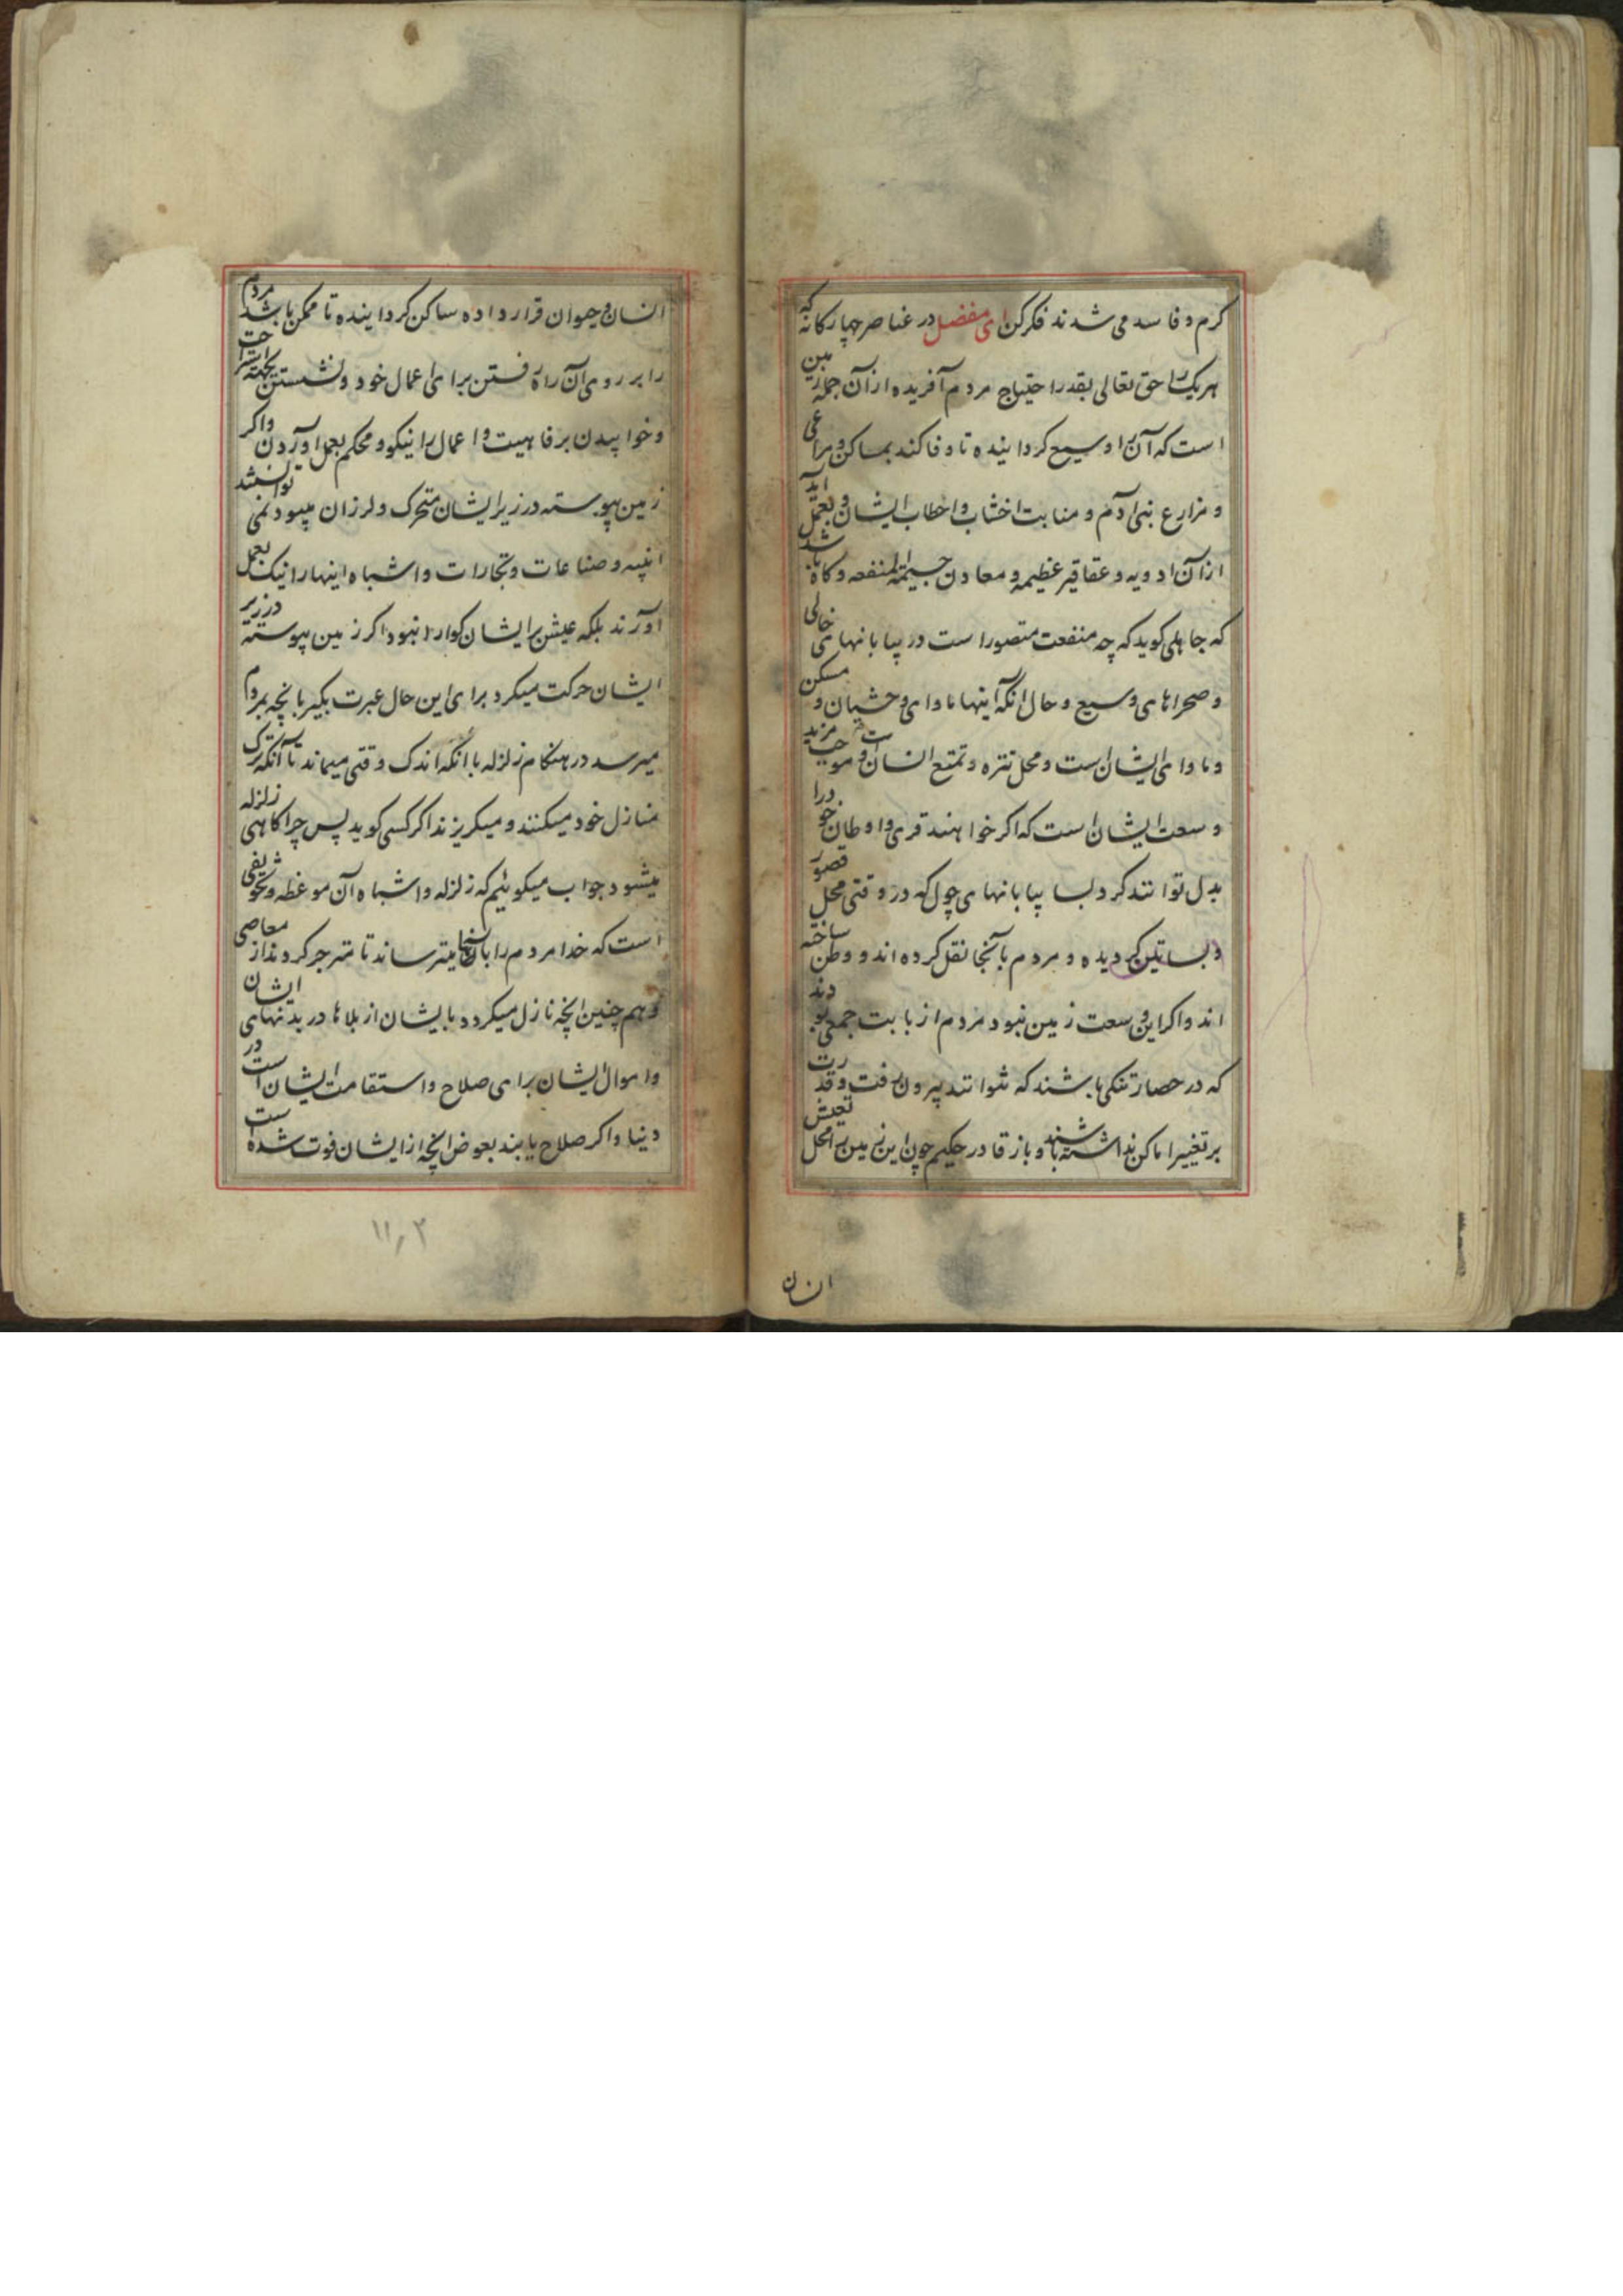 کرم و فاسد می شدند فکر کن ای مفضل در عناصر چهارکانه که
هریک را حق تعالی بقدر احتیاج مردم آفریده از آن جمله زمین
است که آن را وسیع کردانیده تا وفا کند بمساکن و مراعی
و مزارع بنی آدم و منابت اخشاب و احطاب ایشان و بعمل آید
از آن ادویه و عقاقیر عظیمه و معادن جسیمة المنفعه و کاه باشد
که جاهلی کوید که چه منفعت متصور است در بیابانهای خالی
و صحراهای وسیع و حال آنکه اینها ماوای وحشیان و مسکن
و ماوای ایشان است و محل تنزه و تمتع انسان است و موجب مزید
وسعت ایشان است که اکر خواهند قری و اوطان خود را
بدل توانند کرد بسا بیابانهای چول که در وقتی محل قصور
و بساتین کردیده و مردم بآنجا نقل کرده اند و وطن ساخته
اند و اکر این وسعت زمین نبود مردم از بابت جمعی بودند
که در حصار تنکی باشند که نتوانند بیرون رفت و قدرت
بر تغییر اماکن نداشته باشند و باز قادر حکیم چون این زمین را محل تعیش
انسان
انسان و حیوان قرار داده ساکن کردانیده تا ممکن باشد مردم
را بر روی آن راه رفتن برای اعمال خود و نشستن بجهة استراحت
و خوابیدن برفاهیت و اعمال را نیکو و محکم بعمل آوردن و اکر
زمین پیوسته در زیر ایشان متحرک و لرزان میبود نمی توانستند
ابنیه و صناعات و تجارات و اشباه اینها را نیک بعمل
آورند بلکه عیش ایشان کوارا نبود اکر زمین پیوسته در زیر
ایشان حرکت میکرد برای این حال عبرت بکیر بآنچه بمردم
میرسد در هنکام زلزله با آنکه اندک وقتی میماند تا آنکه ترک
منازل خود میکنند و میکریزند اکر کسی کوید پس چرا کاهی زلزله
میشود جواب میکوئیم که زلزله و اشباه آن موعظه و تخویفی
است که خدا مردم را بآنها میترساند تا منزجر کردند از معاصی
و هم چنین آنچه نازل میکردد بایشان از بلاها در بدنهای ایشان
و اموال ایشان برای صلاح و استقامت ایشان است در
دنیا و اکر صلاح یابند بعوض آنچه از ایشان فوت شده است
۱۱٫۲